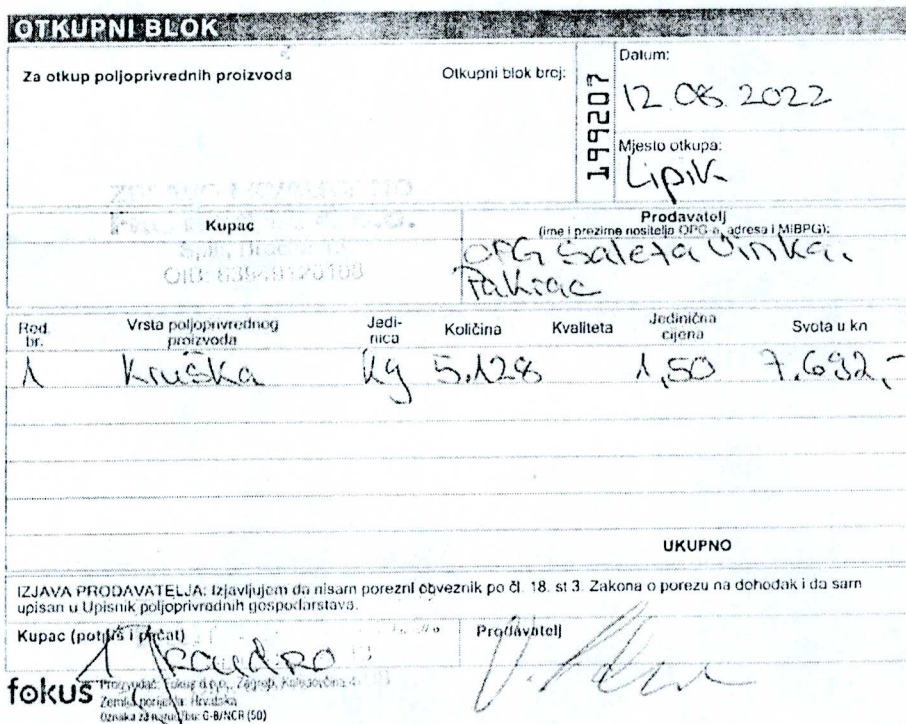 OTKUPNI BLOK
Za otkup poljoprivrednih proizvoda
Otkupni blok broj:
199207
Datum:
12.08.2022
Mjesto otkupa:
Lipik
Kupac
OIB:
Prodavatelj
(ime i prezime nositelja OPG-a, adresa i MIBPG):
OPG Saleta Vinka,
Pakrac
Red. br. Vrsta poljoprivrednog proizvoda Jedinica Količina Kvaliteta Jedinična cijena Svota u kn
1 Kruška kg 5.128 1,50 7.692,-
UKUPNO
IZJAVA PRODAVATELJA: Izjavljujem da nisam porezni obveznik po čl. 18. st 3. Zakona o porezu na dohodak i da sam
upisan u Upisnik poljoprivrednih gospodarstava.
Kupac (potpis i pečat)
Prodavatelj
fokus
Zemlja porijekla: Hrvatska
Oznaka za narudžbu: G-B/NCR (50)